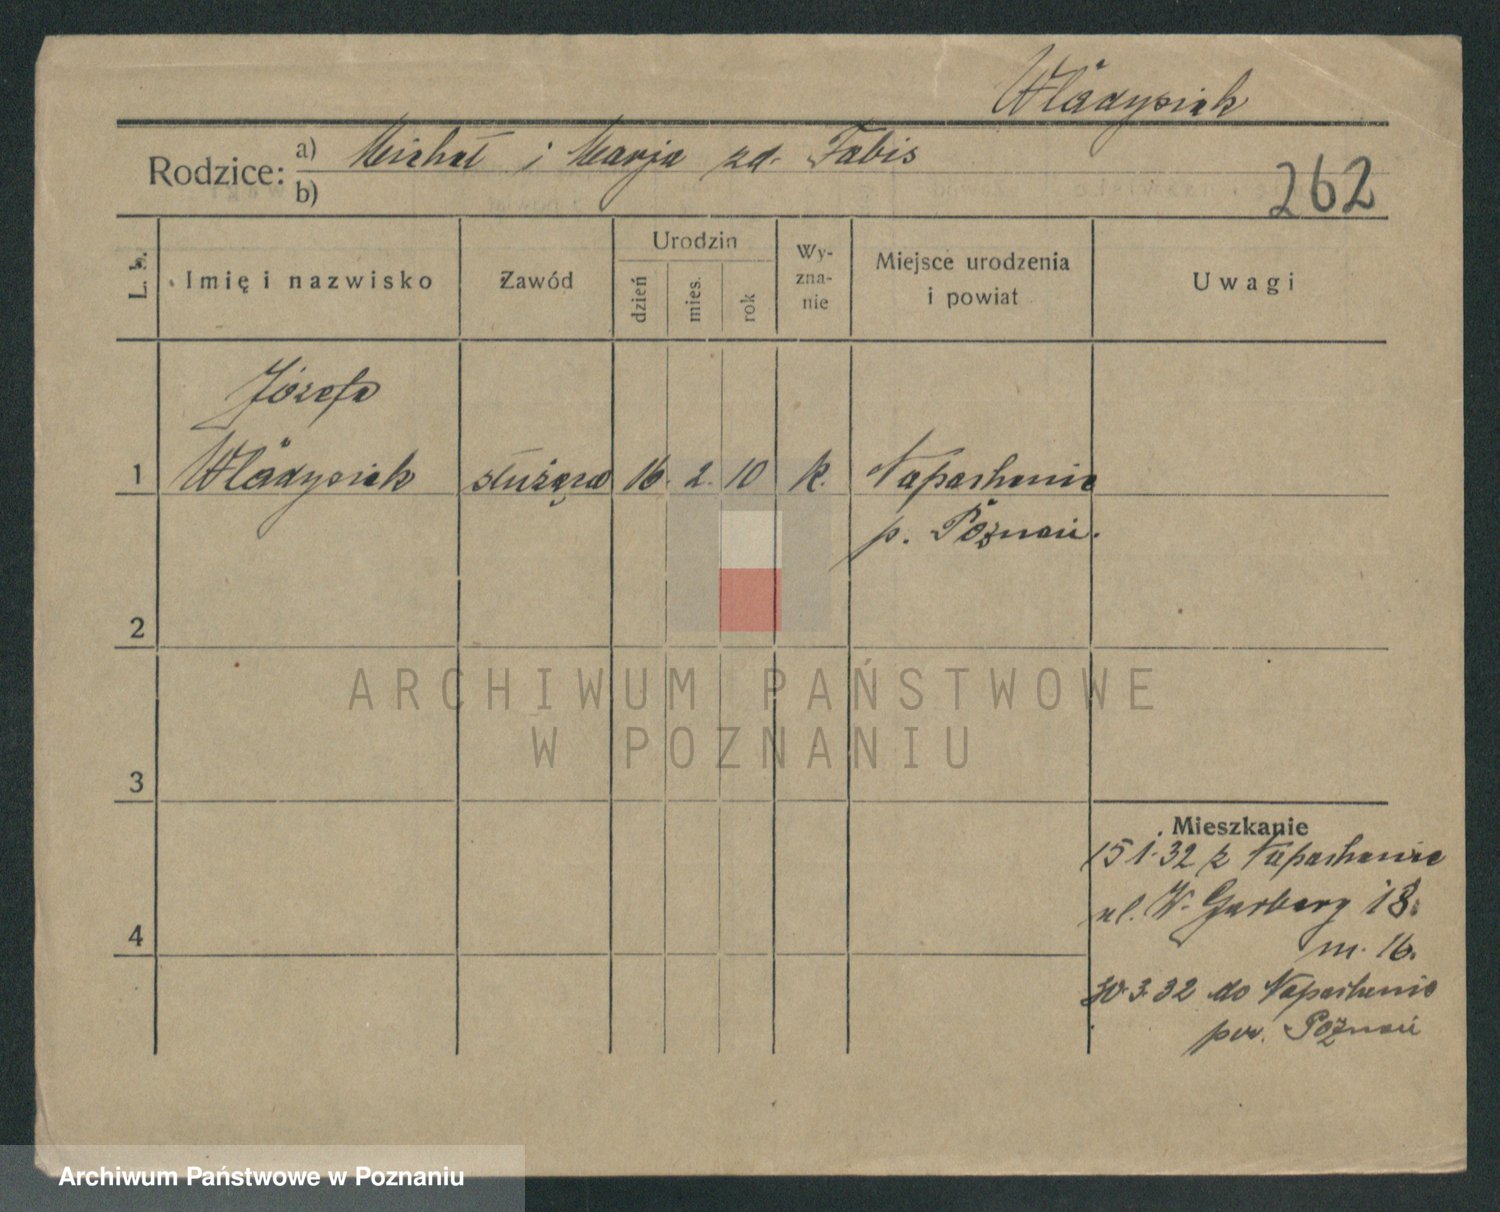 Władysiak
Rodzice: a) Michał i Marja zd. Fabis
b)
262
L. b.
Imię i nazwisko
Zawód
Urodzin
dzień
mies.
rok
Wy-
zna-
nie
Miejsce urodzenia
i powiat
Uwagi
Józefa
1 Władysiak służąca 16. 2. 10 k. Napachanie
p. Poznań.
2
3
4
Mieszkanie
15 1.32 z Napachanie
ul. W. Garbary 18.
m. 16.
30.3.32 do Napachanie
pow. Poznań
ARCHIWUM PAŃSTWOWE
W POZNANIU
Archiwum Państwowe w Poznaniu